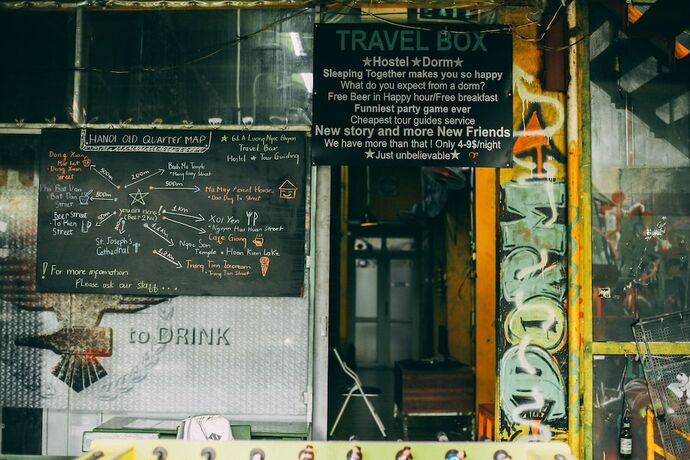 TRAVEL BOX
★Hostel★Dorm★
Sleeping Together makes you so happy
What do you expect from a dorm?
Free Beer in Happy hour/Free breakfast
Funniest party game ever
Cheapest tour guides service
New story and more New Friends
We have more than that ! Only 4-9$/night
★Just unbelievable★
HANOI OLD QUARTER MAP
★ 61A Luong Ngoc Quyen
Travel Box
Hostel ★ Tour Guiding
Dong Xuan
Market
Dong Xuan Street
Bach Ma Temple
Hang Buom Street
Pho Bat Dan
Bat Dan
Street
Ma May Ancient House
Dao Duy Tu Street
Beer Street
Ta Hien
Street
you are here!
1.2km
1km
500m
100m
500m
Xoi Yen
Nguyen Huu Huan Street
Cafe Giang
St Joseph's
Cathedral
Ngoc Son
Temple + Hoan Kiem Lake
Trang Tien Icecream
Trang Tien Street
! For more information
Please ask our staff ...
to DRINK